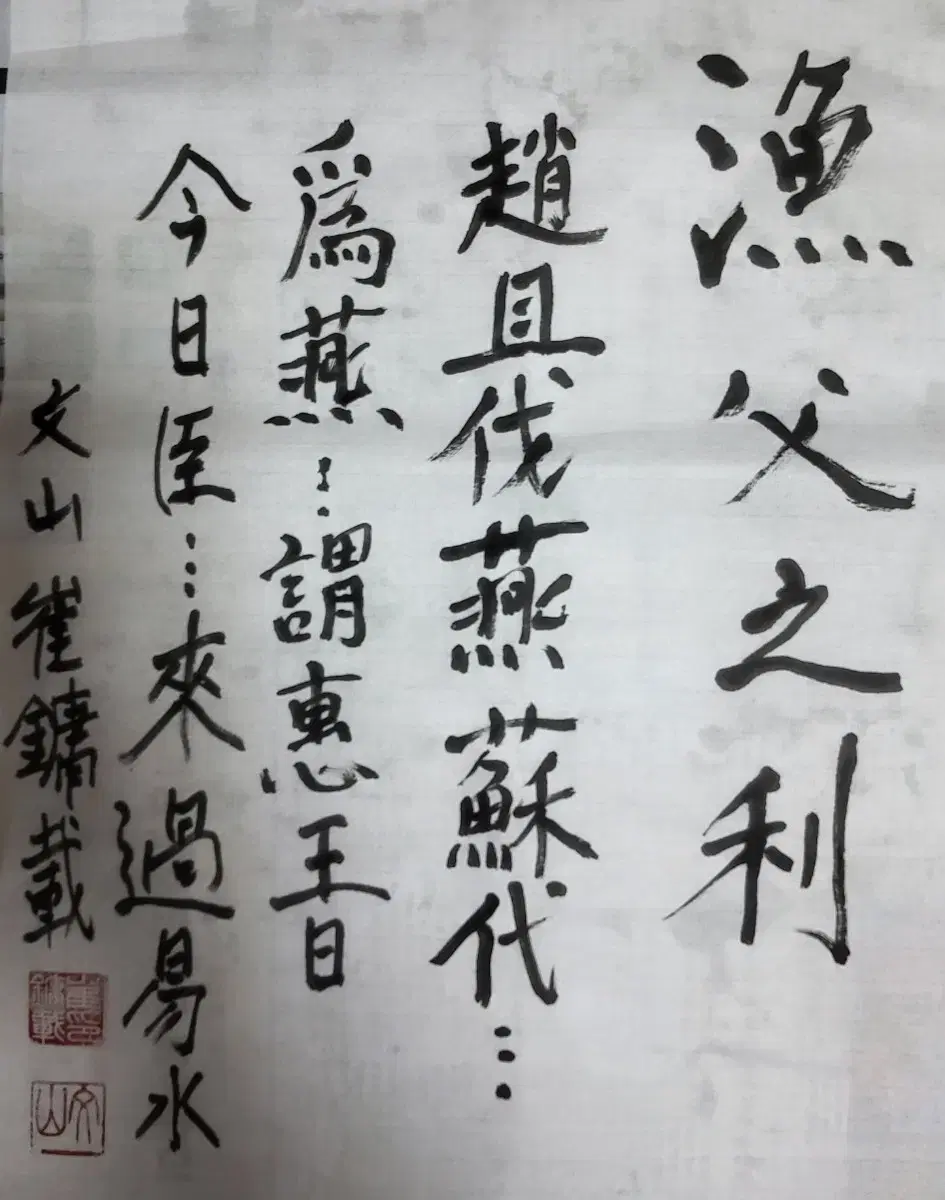 漁父之利
趙且伐燕蘇代…
爲燕…謂惠王曰
今日臣…來過易水
文山崔鏞載
崔鏞載印
文山